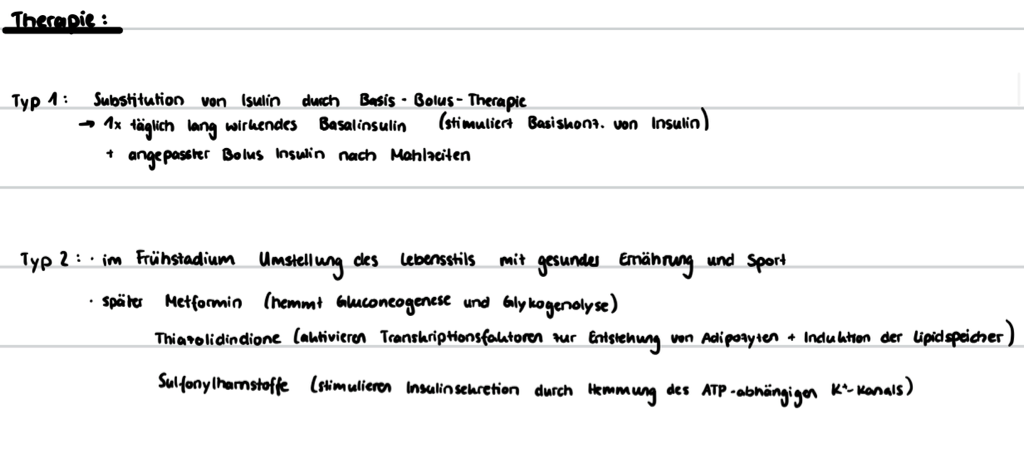 Therapie:
Typ 1: Substitution von Isulin durch Basis-Bolus-Therapie
→ 1x täglich lang wirkendes Basalinsulin (stimuliert Basiskonz. von Insulin)
+ angepasster Bolus Insulin nach Mahlzeiten
Typ 2: · im Frühstadium Umstellung des Lebensstils mit gesunder Ernährung und Sport
· später Metformin (hemmt Gluconeogenese und Glykogenolyse)
Thiazolidindione (aktivieren Transkriptionsfaktoren zur Entstehung von Adipozyten + Induktion der Lipidspeicher)
Sulfonylharnstoffe (stimulieren Insulinsekretion durch Hemmung des ATP-abhängigen K⁺-Kanals)